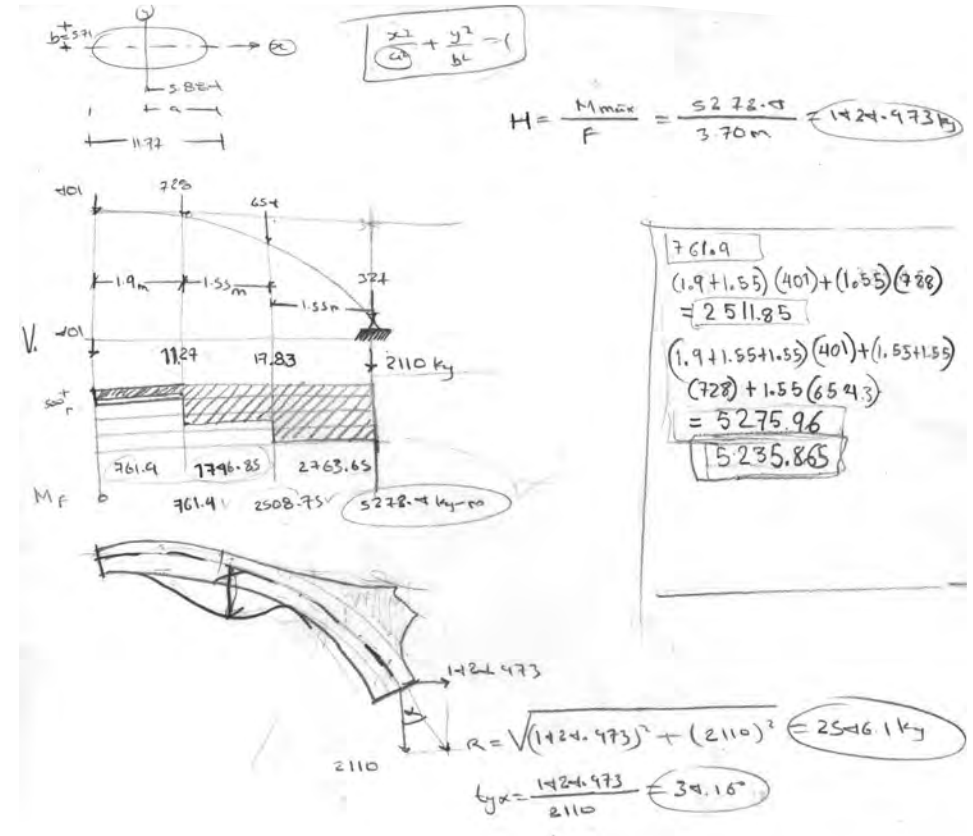 y
b=5.71
x
x²/a² + y²/b² = 1
5.86
a
11.72
H = Mmáx/F = 5278.4/3.70m = 1424.473 kg
401 728 654
327
1.9m 1.55m 1.55m
V. 401 1127 1783 2110 kg
761.9 1746.85 2763.65
MF 0 761.9 2508.75 5278.4 kg-m
761.9
(1.9+1.55)(401)+(1.55)(728)
= 2511.85
(1.9+1.55+1.55)(401)+(1.55+1.55)
(728)+1.55(654.3)
= 5275.96
5235.865
1424.473
α
2110
R = √(1424.473)² + (2110)² = 2546.1 kg
tgα = 1424.473/2110 = 34.16°